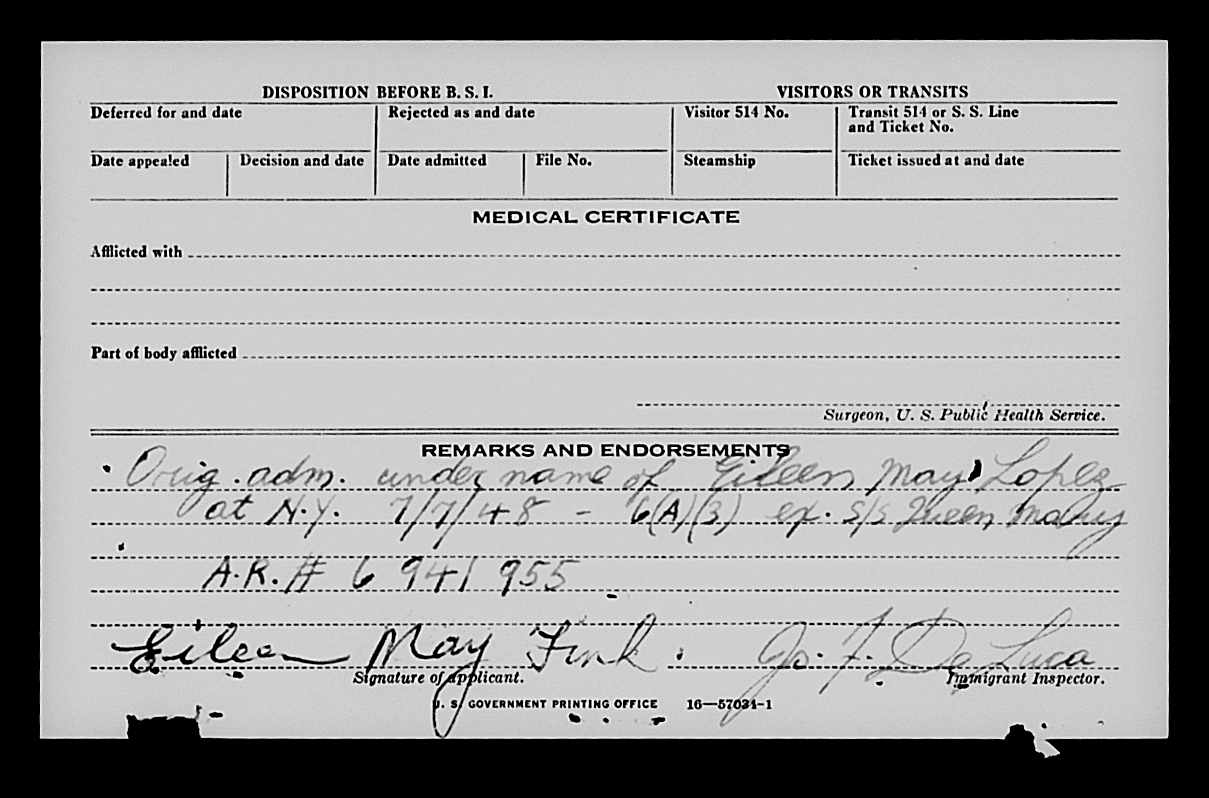 DISPOSITION BEFORE B. S. I. VISITORS OR TRANSITS
Deferred for and date Rejected as and date Visitor 514 No. Transit 514 or S. S. Line
and Ticket No.
Date appealed Decision and date Date admitted File No. Steamship Ticket issued at and date
MEDICAL CERTIFICATE
Afflicted with
Part of body afflicted
Surgeon, U. S. Public Health Service.
REMARKS AND ENDORSEMENTS
Orig. adm. under name of Eileen May Lopez
at N.Y. 7/7/48 - 6(A)(3) ex. S/S Queen Mary
A.R. # 6 941 955
Eileen May Fink. F. De Luca
Signature of applicant. Immigrant Inspector.
U. S. GOVERNMENT PRINTING OFFICE 16—57034-1